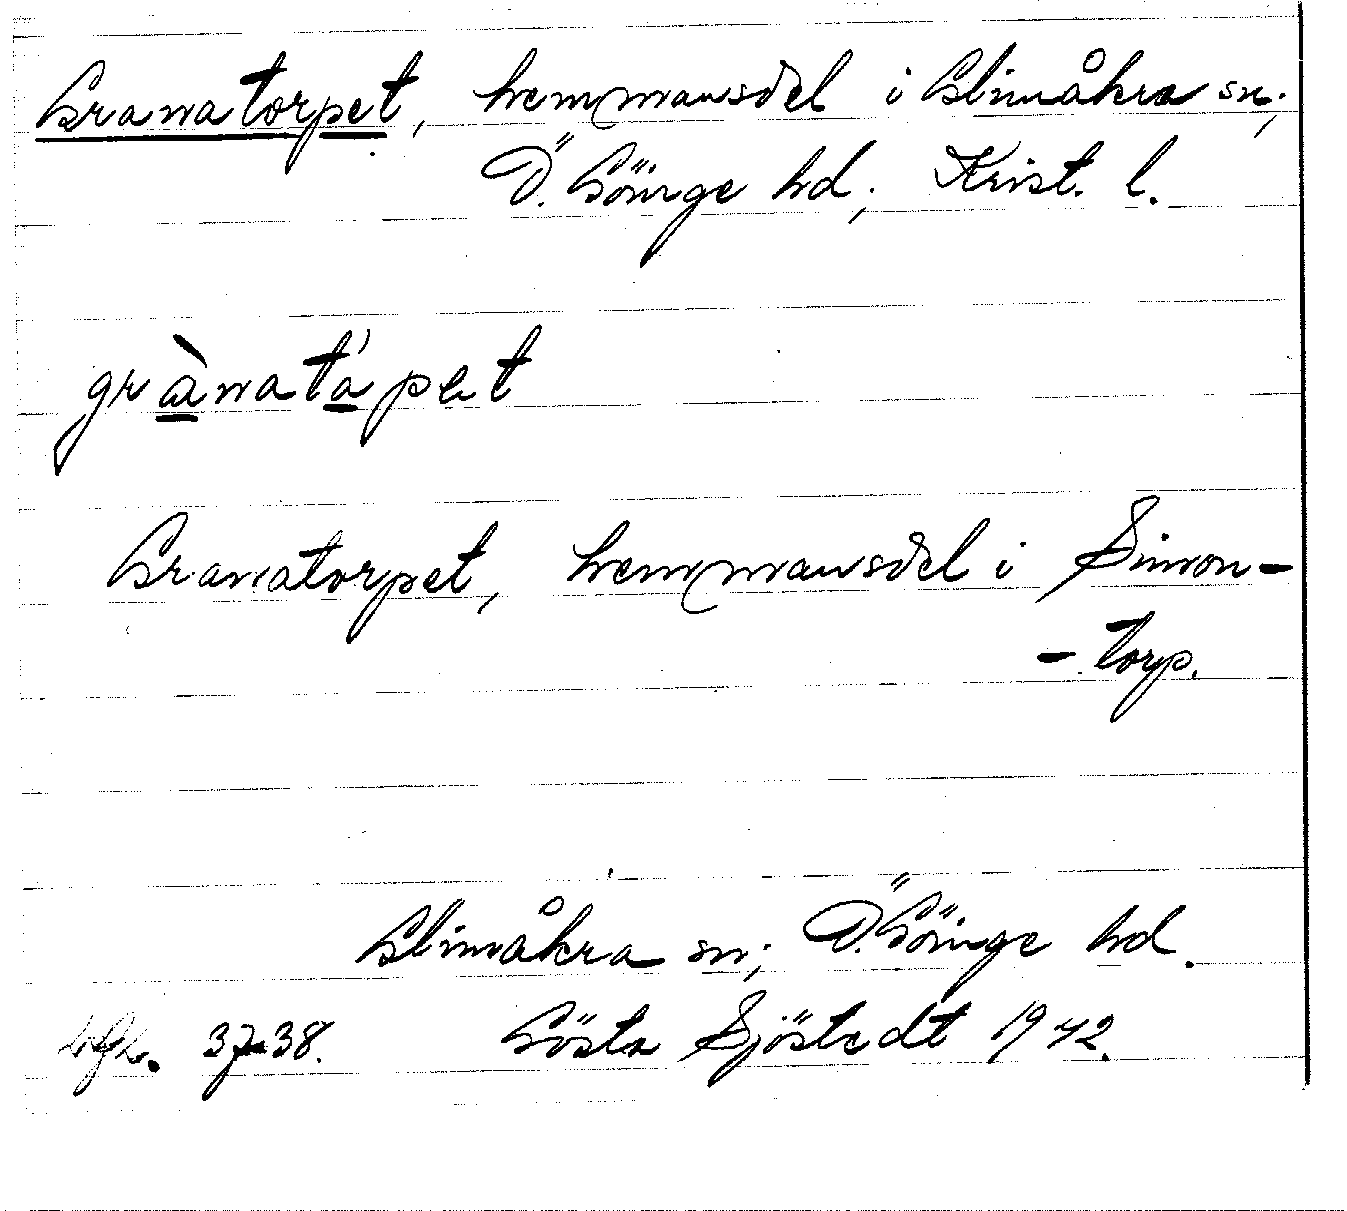 Granatorpet, hemmansdel i Glimåkra sn;
Ö. Göinge hd; Krist. l.
grànatápet
Granatorpet, hemmansdel i Simon-
- torp.
Glimåkra sn; Ö. Göinge hd.
37-38. Gösta Sjöstedt 1942.